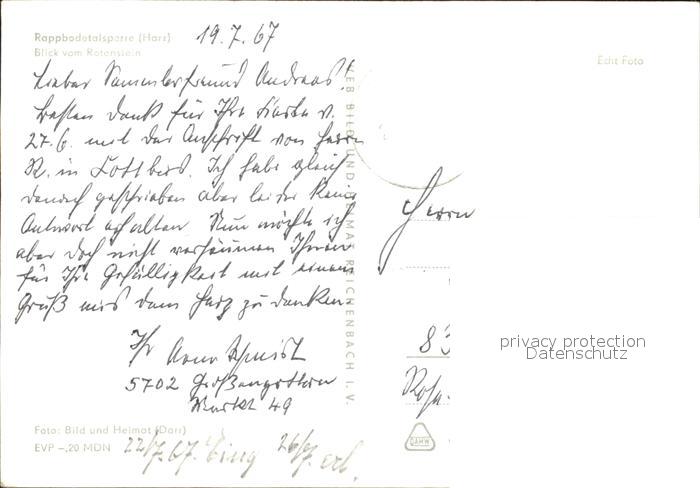 Rappbodetalsperre (Harz)
Blick vom Rotenstein
19.7.67
Echt Foto
Lieber Sammlerfreund Andreas!
Besten Dank für Ihre Karte v.
27.6. mit der Anschrift von Herrn
R. in Cottbus. Ich habe gleich
danach geschrieben aber leider keine
Antwort erhalten. Nun möchte ich
aber doch nicht versäumen Ihnen
für Ihre Gefälligkeit mit einem
Gruß aus dem Harz zu danken.
Ihr
5702 Großengottern
Markt 49
VEB BILD UND HEIMAT REICHENBACH I. V.
Herrn
83
Rosa-
privacy protection
Datenschutz
DAHW
Foto: Bild und Heimat (Darr)
EVP –,20 MDN
22/7.67. Eing 26/7. erl.